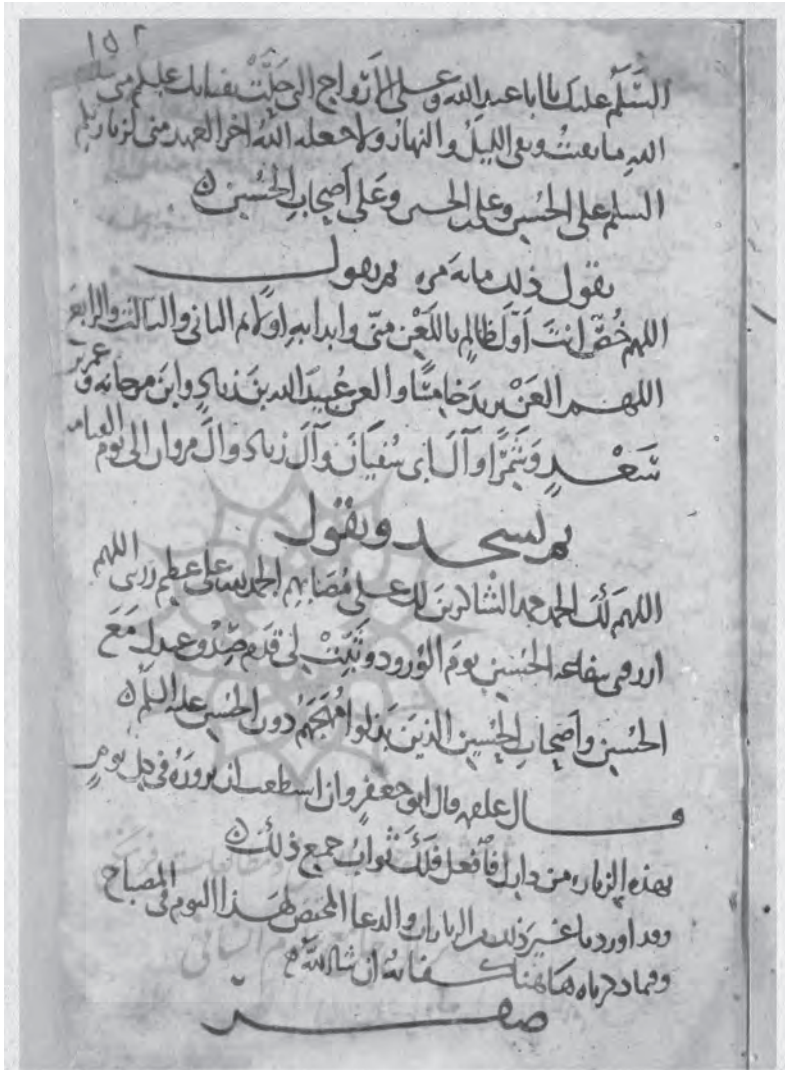 ١٥٢
السَّلَمُ عليك يا ابا عبد الله وعلى الارواح التي حَلَّتْ بفنايك عليكم مني سلم
الله ما بقيتُ وبقى الليلُ والنهارُ ولا جعله اللهُ اخر العهد منى لزيارتكم
السلم على الحُسين وعلى بن الحسين وعَلى اَصحابِ الحُسَين ن
يقول ذلك مايه مره ثم يقول
اللهم خُصَّ انتَ اَوّلَ ظالمٍ باللَعْن منّى وابدا به اولا ثم الثانى والثالث والرابع
اللهم العَنْ يزيدَ خامسًا والعن عُبيدَ الله بنَ زيادٍ وابنَ مرجانه وعمر بن
سَعْدٍ وَشِمْرًا وآلَ ابى سُفيَان وَآلَ زياد وآل مروان الى يوم القيامه
ثم تسجد وتقول
اللهم لَكَ الحمد حمد الشاكرينَ لك على مُصَابهم الحمد لله على عظيم رزيتى اللهم
ارزقنى شفاعه الحُسَين يومَ الوُرود وثَبِّتْ لى قدم صِدْق عندك مَعَ
الحُسين واَصحابِ الحُسين الذينَ بَذلوا مُهَجَهُم دون الحُسين عليه السلم ن
قال علقمه قال ابو جعفرٍ وان استطعت ان تزورَهُ فى كل يومٍ
بهذه الزياره من دارك فافعل فلَكَ ثَوابُ جميع ذلك ن
وقد اوردنا غيرَ ذلك من الزيارات والدعا المختص بهَذا اليوم فى المصباح
وفيما ذكرناه هَاهُنا كفايهٌ ان شا اللهُ
صفر